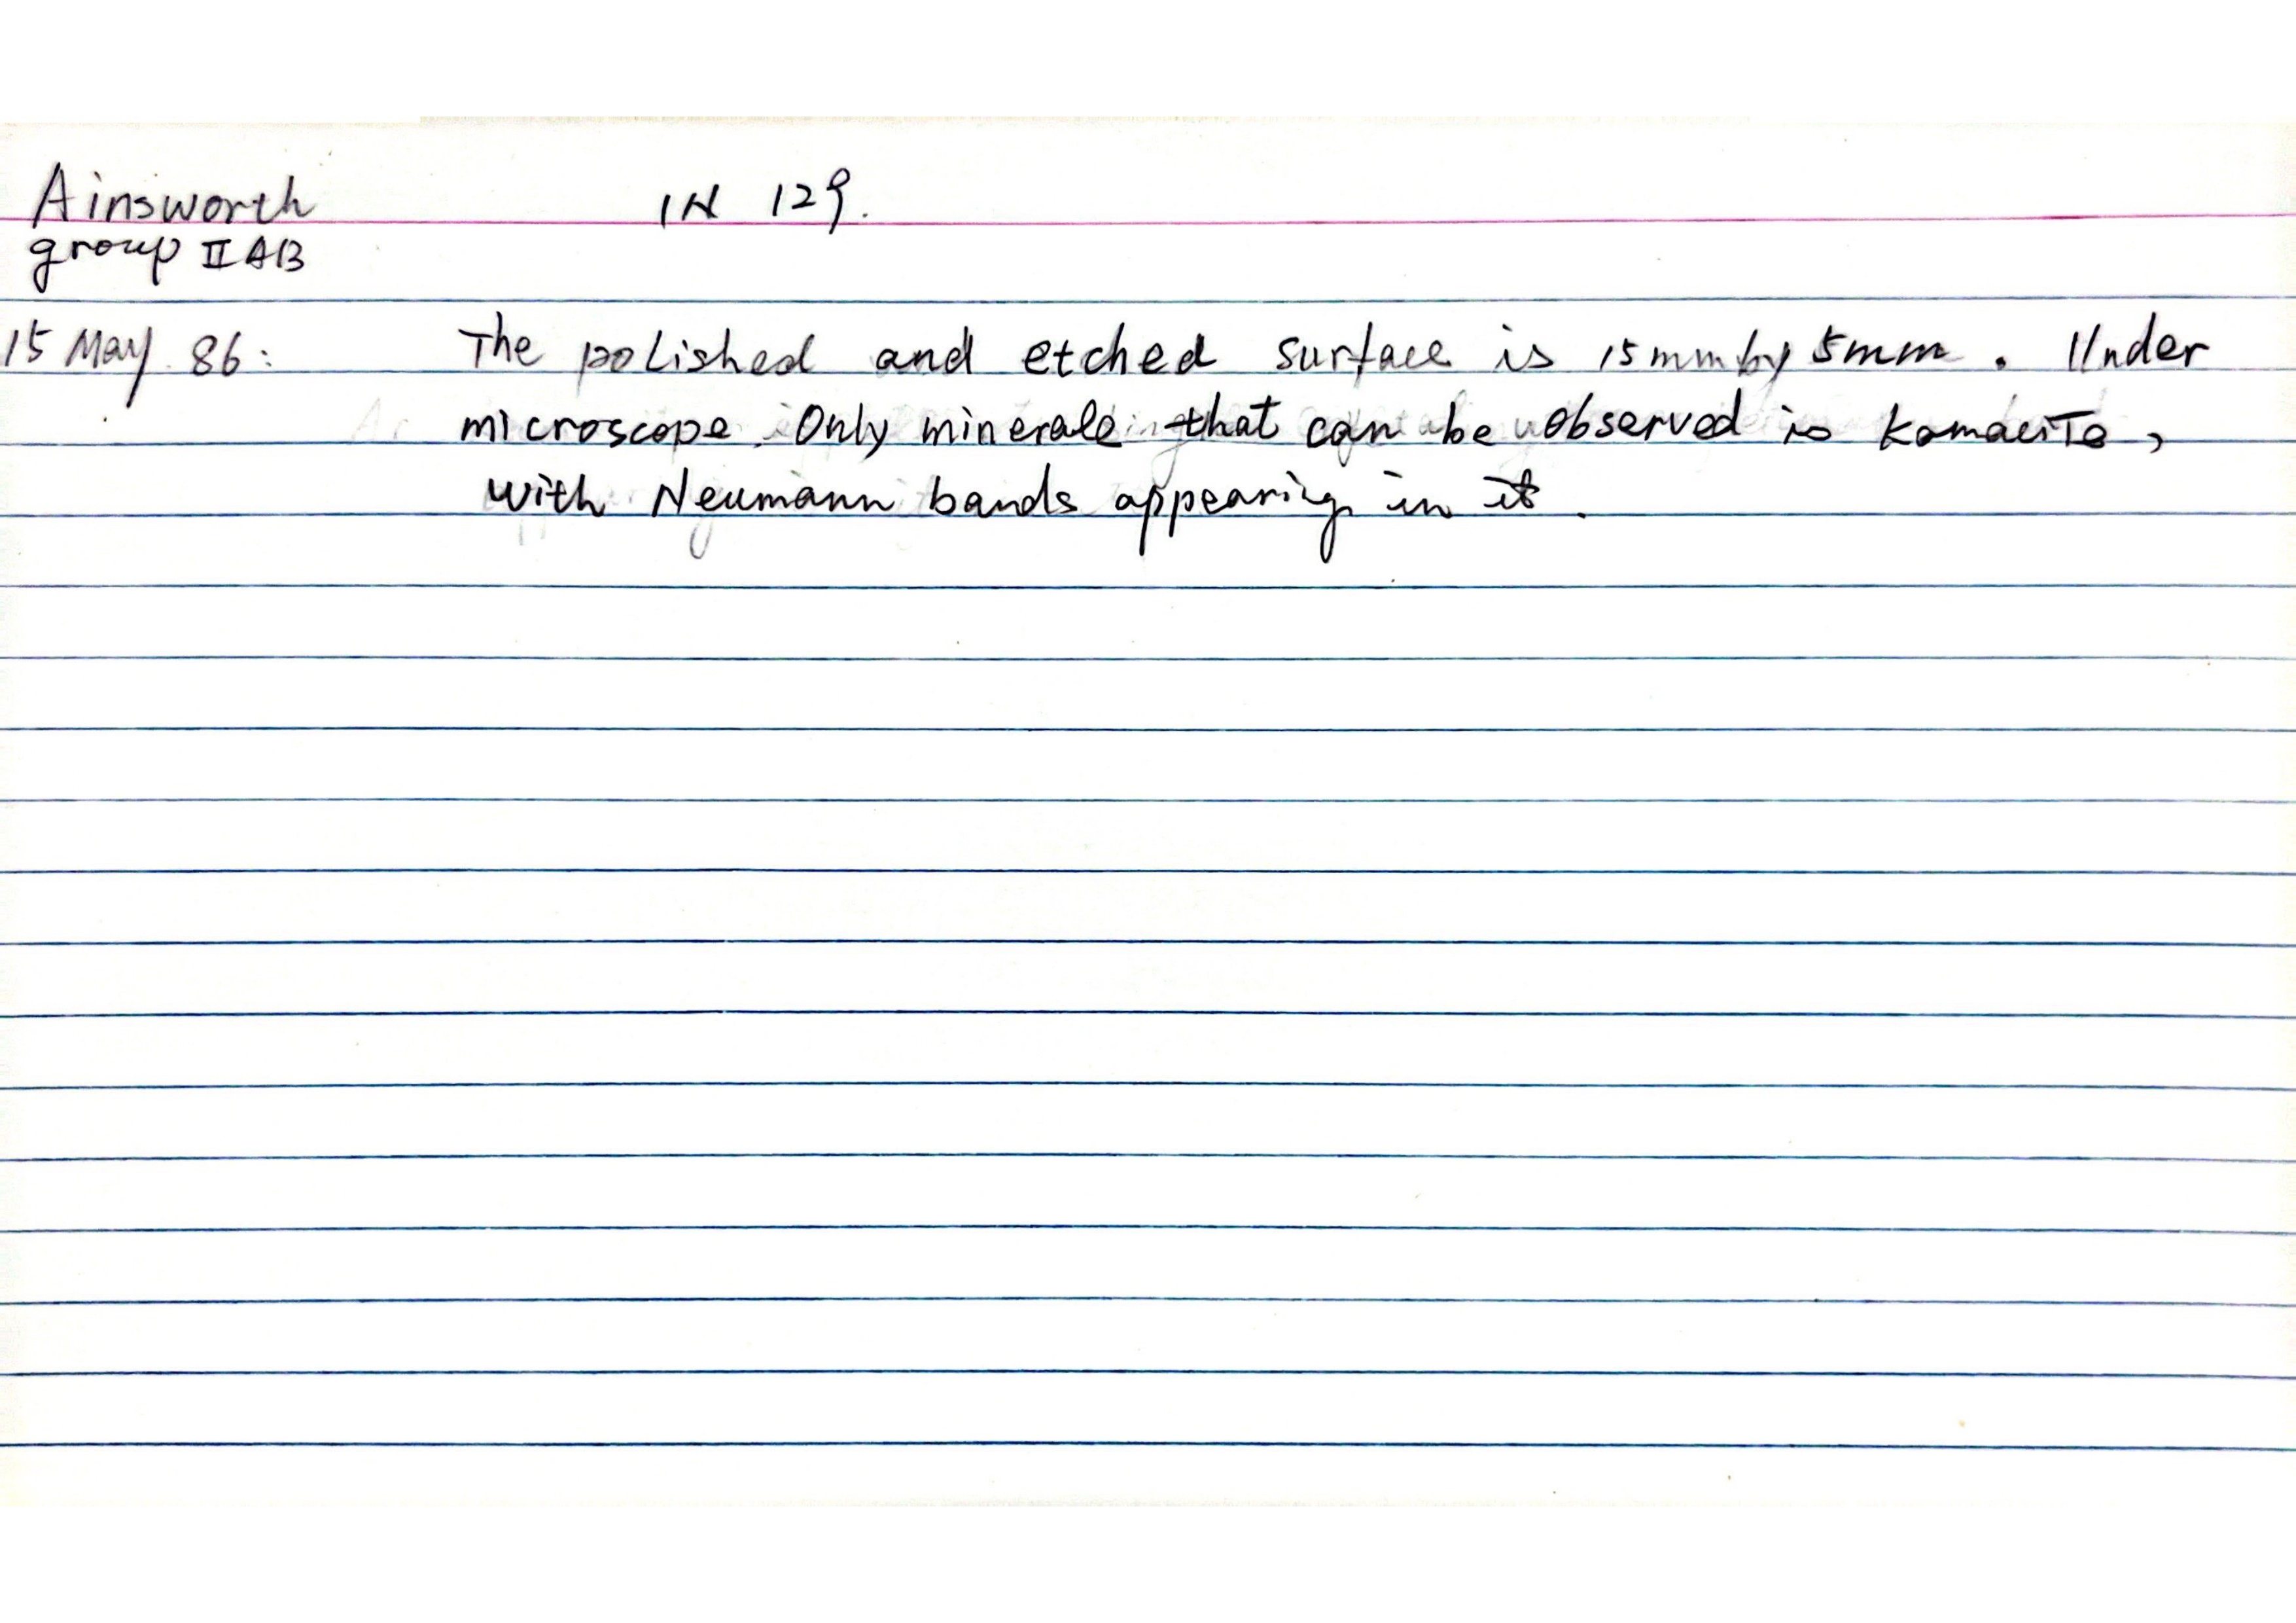 Ainsworth IN 129.
group IIAB
15 May. 86: The polished and etched surface is 15mm by 5mm. Under
microscope. Only minerale that can be observed is Kamacite,
with Neumann bands appearing in it.